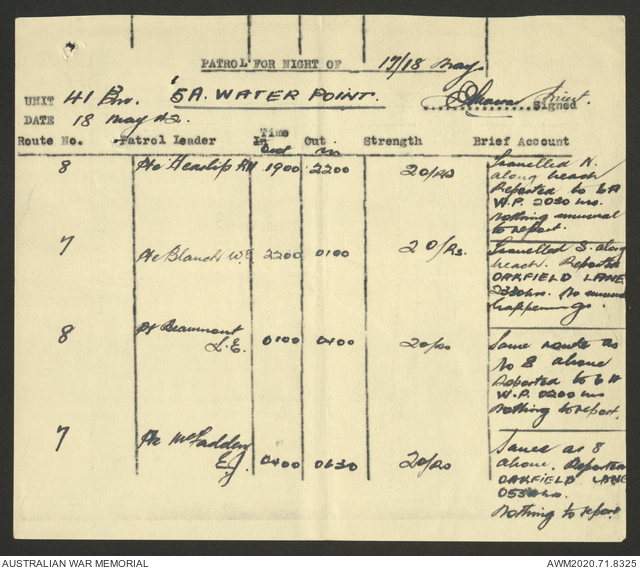 PATROL FOR NIGHT OF 17/18 May.
UNIT 41 Bn. 5A. WATER POINT.
Signed
DATE 18 May 42.
Time
Route No. Patrol Leader In Out Strength Brief Account
out in
8 Pte 1900 2200 2 O/Rs Travelled N.
along beach
Reported to 6A
W.P. 2030 hrs.
Nothing unusual
to report.
7 Pte Blanch W.E 2200 0100 2 O/Rs. Travelled S. along
beach. Reported
OAKFIELD LANE
2330 hrs. No unusual
happenings.
8 Pte Beaumont
L.E. 0100 0400 2 O/Rs Same route as
No 8 above
Reported to 6A
W.P. 0200 hrs
Nothing to report.
7 Pte McFadden
E.J. 0400 0630 2 O/Rs Same as 8
above. Reported
OAKFIELD LANE
0530 hrs.
Nothing to report.
AUSTRALIAN WAR MEMORIAL AWM2020.71.8325